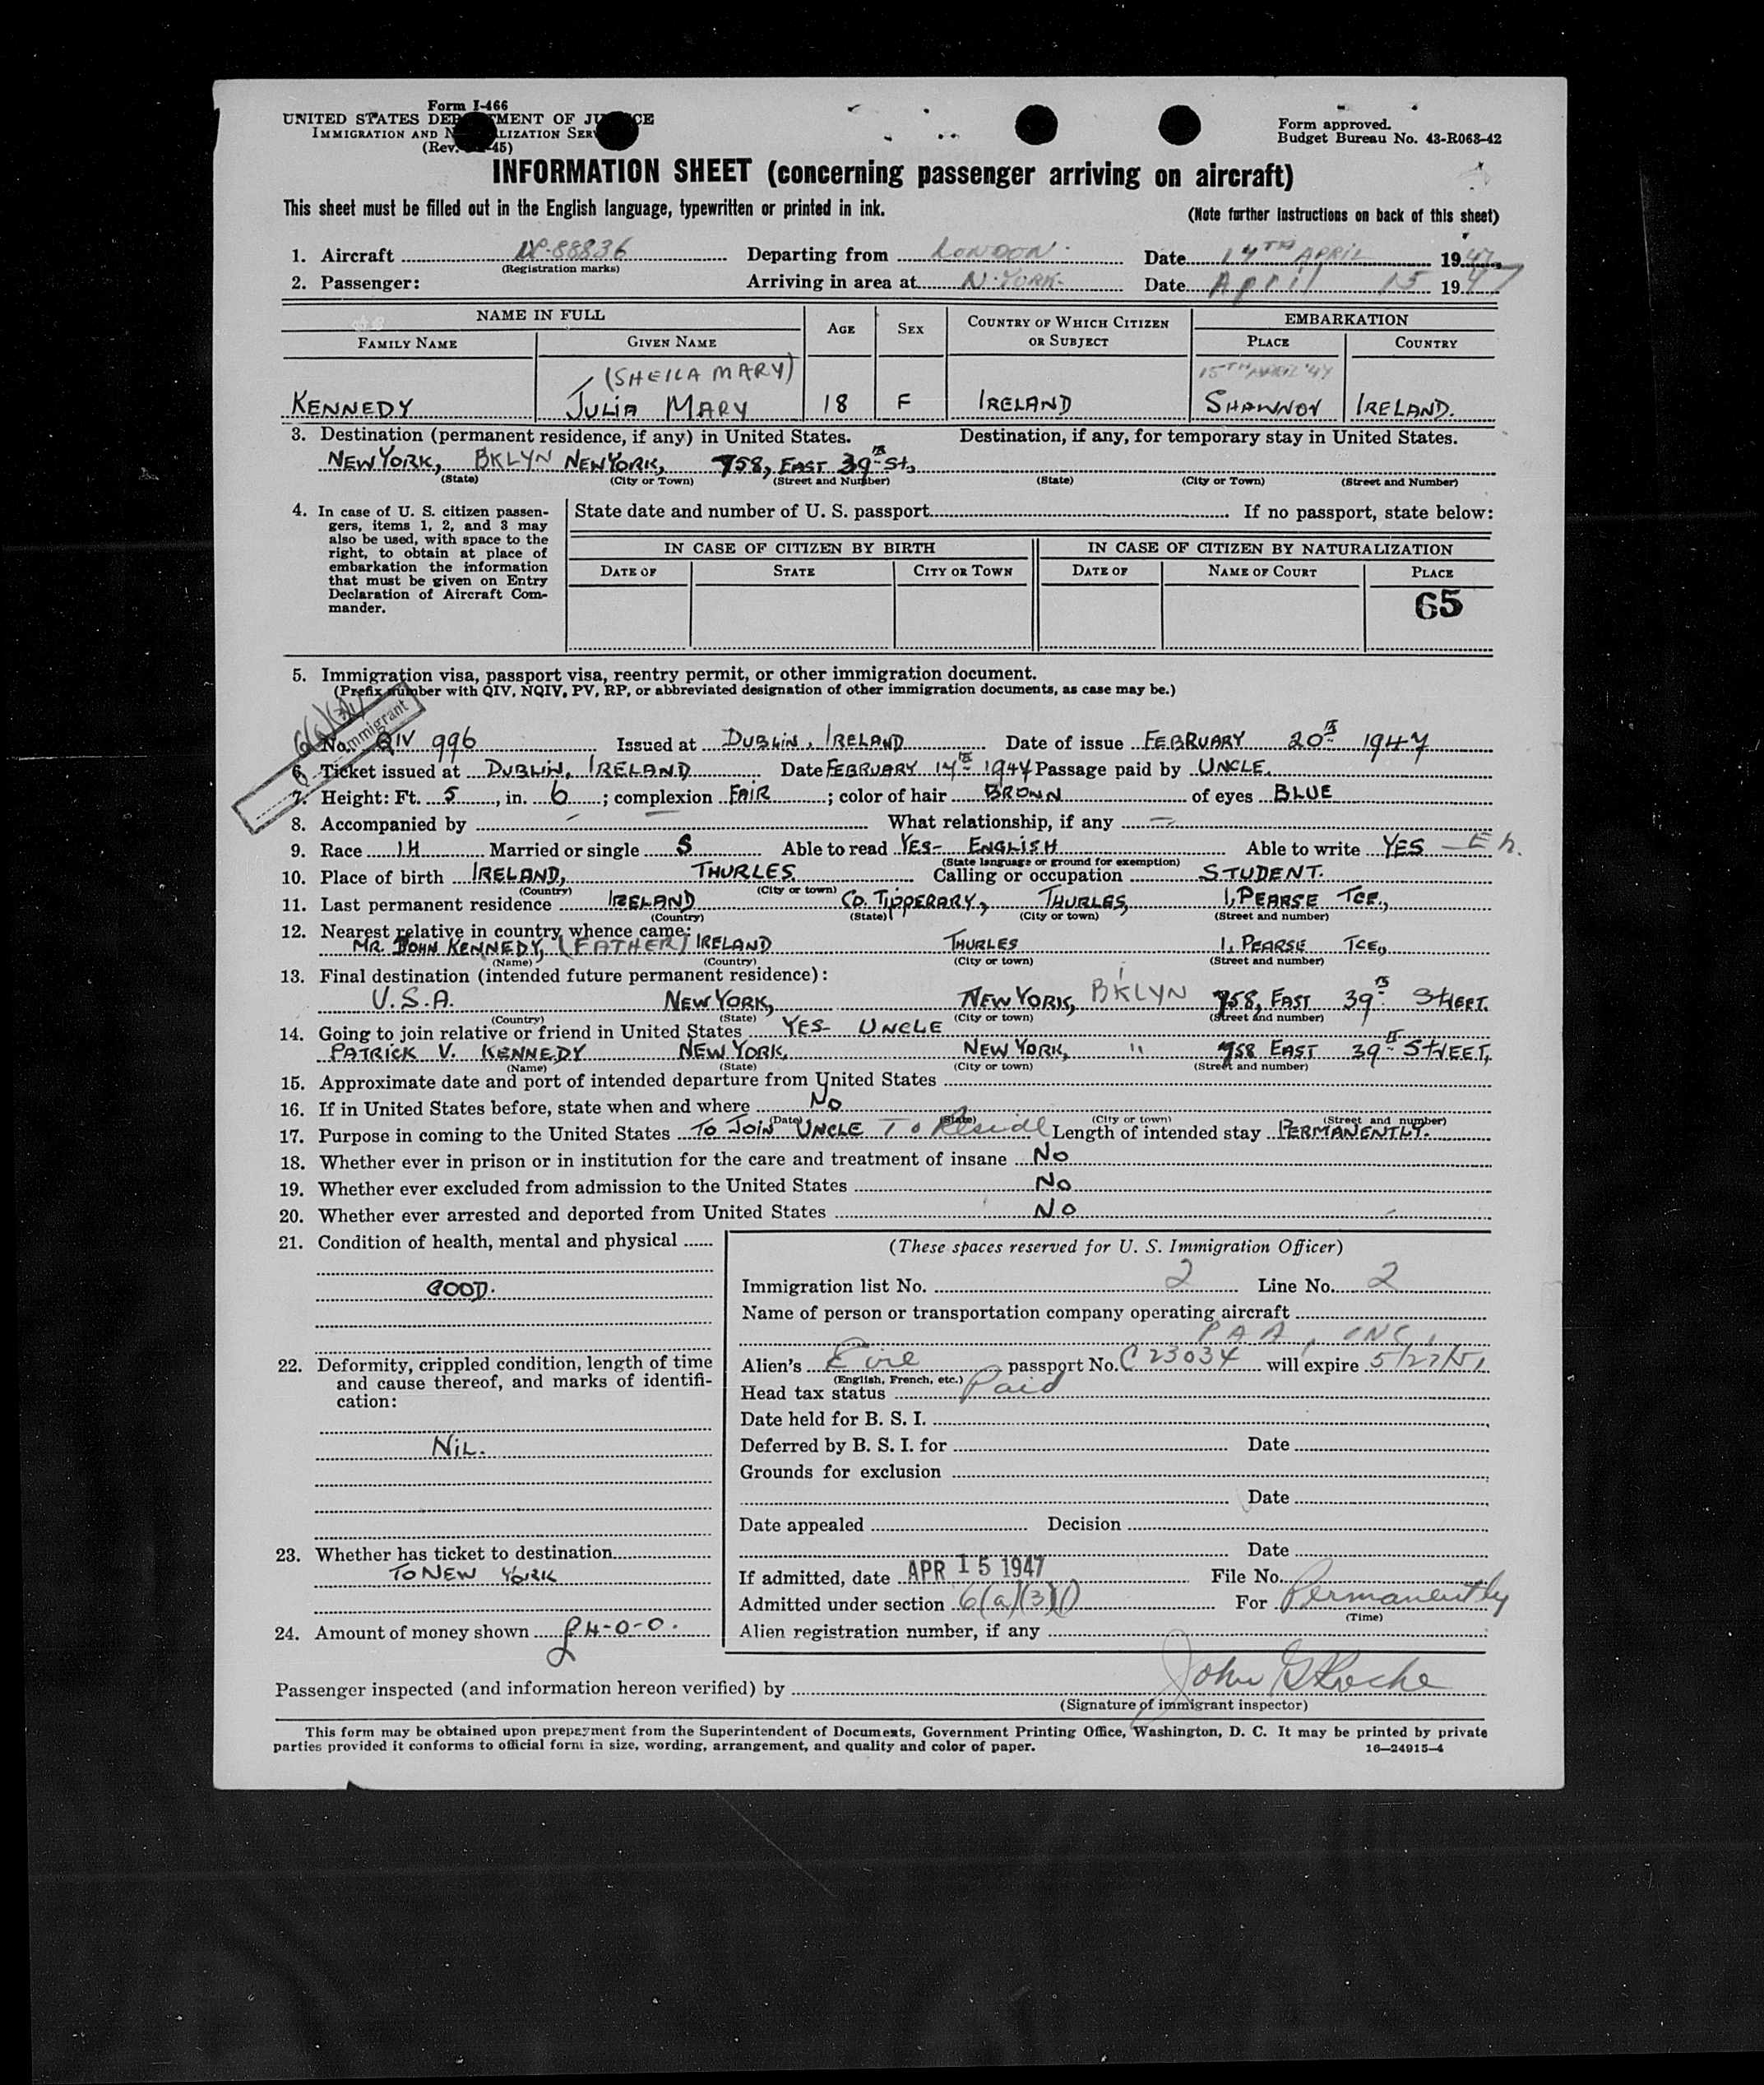 Form I-466
UNITED STATES DEPARTMENT OF JUSTICE
IMMIGRATION AND NATURALIZATION SERVICE
(Rev. 45)
Form approved.
Budget Bureau No. 43-R063-42
INFORMATION SHEET (concerning passenger arriving on aircraft)
This sheet must be filled out in the English language, typewritten or printed in ink.
(Note further instructions on back of this sheet)
1. Aircraft 88836 Departing from LONDON. Date APRIL 1947
(Registration marks)
2. Passenger: Arriving in area at N. YORK. Date April 15 1947
NAME IN FULL AGE SEX COUNTRY OF WHICH CITIZEN OR SUBJECT EMBARKATION
FAMILY NAME GIVEN NAME PLACE COUNTRY
(SHEILA MARY) 15TH APRIL '47
KENNEDY JULIA MARY 18 F IRELAND SHANNON IRELAND.
3. Destination (permanent residence, if any) in United States. Destination, if any, for temporary stay in United States.
NEW YORK, BKLYN NEW YORK, 758, EAST 39TH St,
(State) (City or Town) (Street and Number) (State) (City or Town) (Street and Number)
4. In case of U. S. citizen passengers, items 1, 2, and 3 may also be used, with space to the right, to obtain at place of embarkation the information that must be given on Entry Declaration of Aircraft Commander.
State date and number of U. S. passport If no passport, state below:
IN CASE OF CITIZEN BY BIRTH IN CASE OF CITIZEN BY NATURALIZATION
DATE OF STATE CITY OR TOWN DATE OF NAME OF COURT PLACE
65
5. Immigration visa, passport visa, reentry permit, or other immigration document.
(Prefix number with QIV, NQIV, PV, RP, or abbreviated designation of other immigration documents, as case may be.)
Immigrant
No. QIV 996 Issued at DUBLIN, IRELAND Date of issue FEBRUARY 20TH 1947
6. Ticket issued at DUBLIN, IRELAND Date FEBRUARY 17TH 1947 Passage paid by UNCLE.
7. Height: Ft. 5, in. 6; complexion FAIR; color of hair BROWN of eyes BLUE
8. Accompanied by - What relationship, if any -
9. Race IH Married or single S Able to read YES- ENGLISH Able to write YES - Eh.
(State language or ground for exemption)
10. Place of birth IRELAND, THURLES Calling or occupation STUDENT.
(Country) (City or town)
11. Last permanent residence IRELAND CO. TIPPERARY, THURLES, 1, PEARSE TCE.,
(Country) (State) (City or town) (Street and number)
12. Nearest relative in country whence came:
MR. JOHN KENNEDY, (FATHER) IRELAND THURLES 1, PEARSE TCE,
(Name) (Country) (City or town) (Street and number)
13. Final destination (intended future permanent residence):
U.S.A. NEW YORK, NEW YORK, BKLYN 758, EAST 39TH STREET.
(Country) (State) (City or town) (Street and number)
14. Going to join relative or friend in United States YES- UNCLE
PATRICK V. KENNEDY NEW YORK, NEW YORK, " 758 EAST 39TH STREET,
(Name) (State) (City or town) (Street and number)
15. Approximate date and port of intended departure from United States
16. If in United States before, state when and where No
(Date) (State) (City or town) (Street and number)
17. Purpose in coming to the United States TO JOIN UNCLE To Reside Length of intended stay PERMANENTLY.
18. Whether ever in prison or in institution for the care and treatment of insane No
19. Whether ever excluded from admission to the United States No
20. Whether ever arrested and deported from United States No
21. Condition of health, mental and physical
GOOD.
22. Deformity, crippled condition, length of time and cause thereof, and marks of identification:
NIL.
23. Whether has ticket to destination
TO NEW YORK
24. Amount of money shown £4-0-0.
(These spaces reserved for U. S. Immigration Officer)
Immigration list No. 2 Line No. 2
Name of person or transportation company operating aircraft
PAA, INC,
Alien's Eire passport No. C 23034 will expire 5/27/51
(English, French, etc.)
Head tax status Paid
Date held for B. S. I.
Deferred by B. S. I. for Date
Grounds for exclusion
Date
Date appealed Decision
Date
If admitted, date APR 15 1947 File No.
Admitted under section 6(a)(3)() For Permanently
(Time)
Alien registration number, if any
Passenger inspected (and information hereon verified) by John G Roche
(Signature of immigrant inspector)
This form may be obtained upon prepayment from the Superintendent of Documents, Government Printing Office, Washington, D. C. It may be printed by private
parties provided it conforms to official form in size, wording, arrangement, and quality and color of paper. 16—24915-4